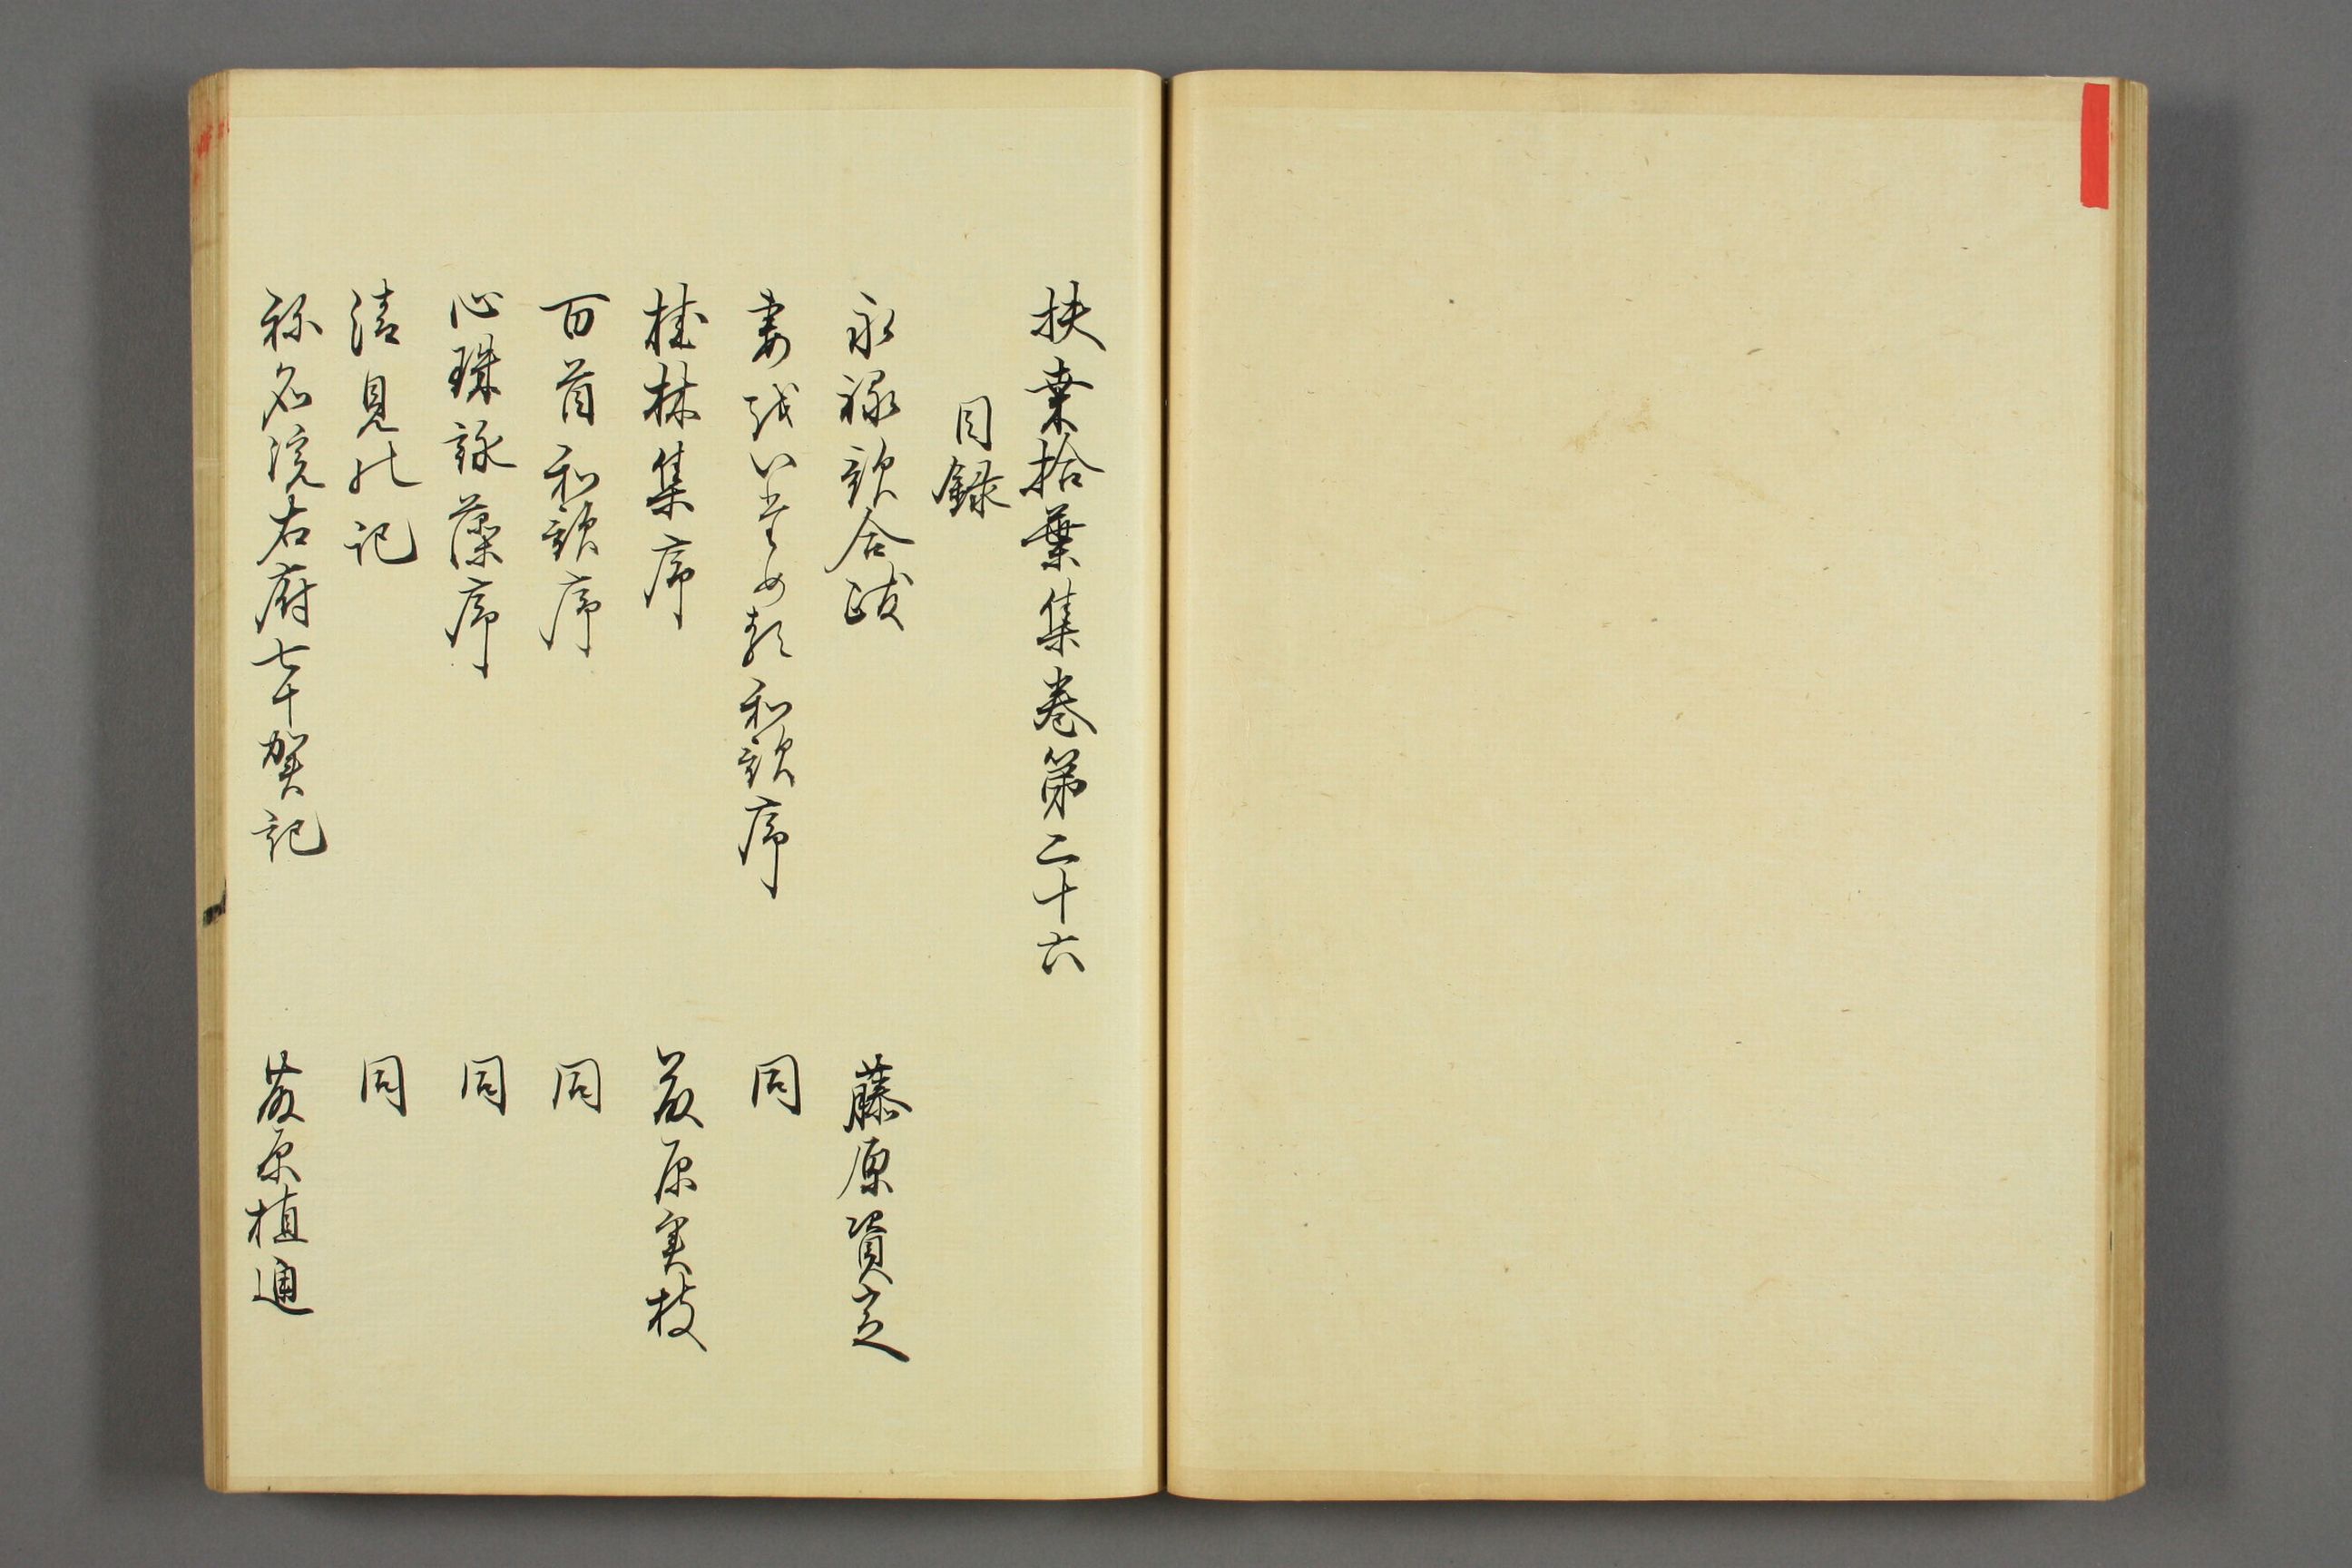 扶桑拾葉集巻第二十六
目録
永禄歌合跋　藤原資定
妻をいためる和歌序　同
桂林集序　藤原実枝
百首和歌序　同
心珠詠藻序　同
清見の記　同
称名院右府七十賀記　藤原植通